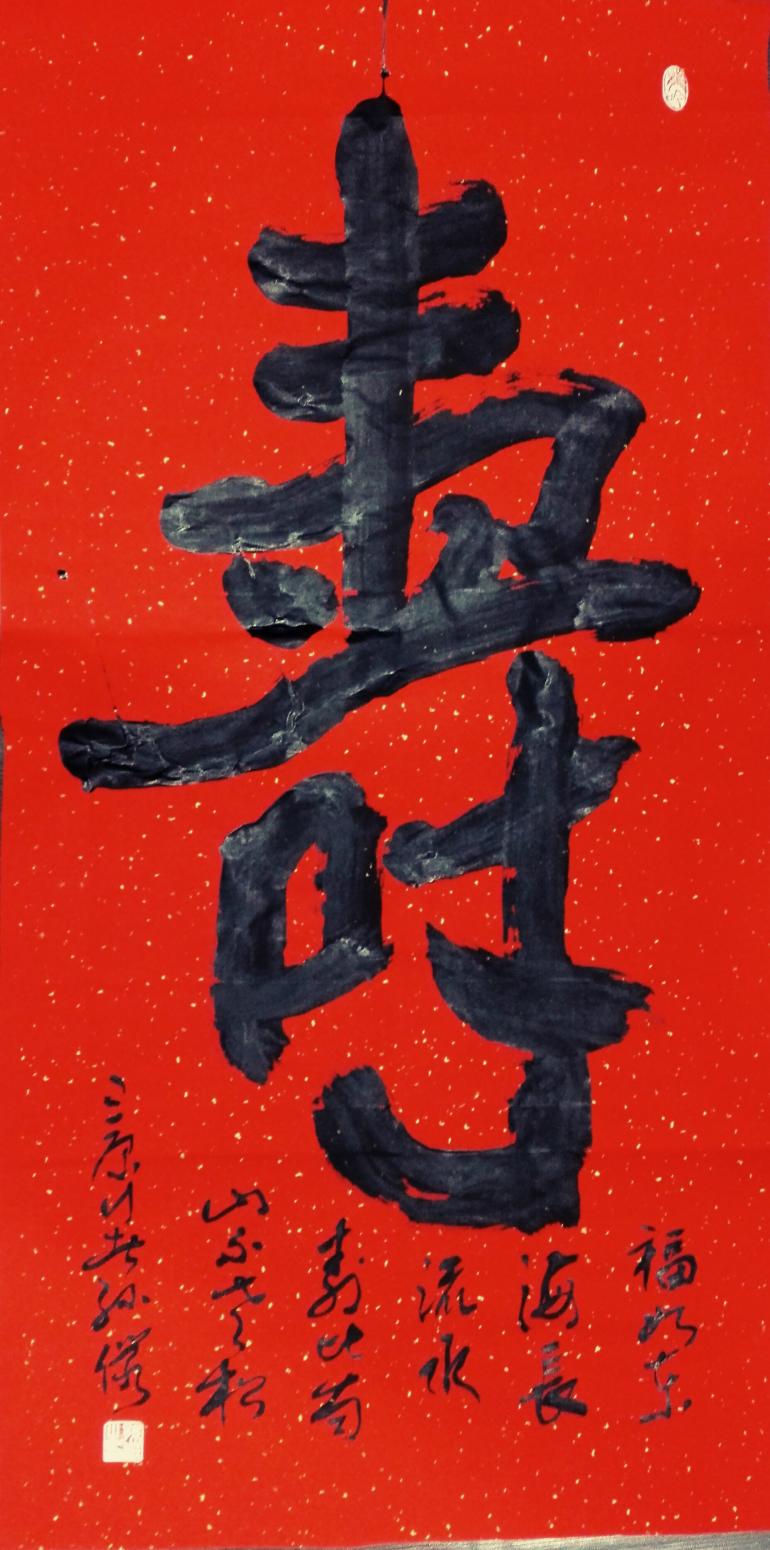 壽
福如东
海長
流水
壽比南
山不老松